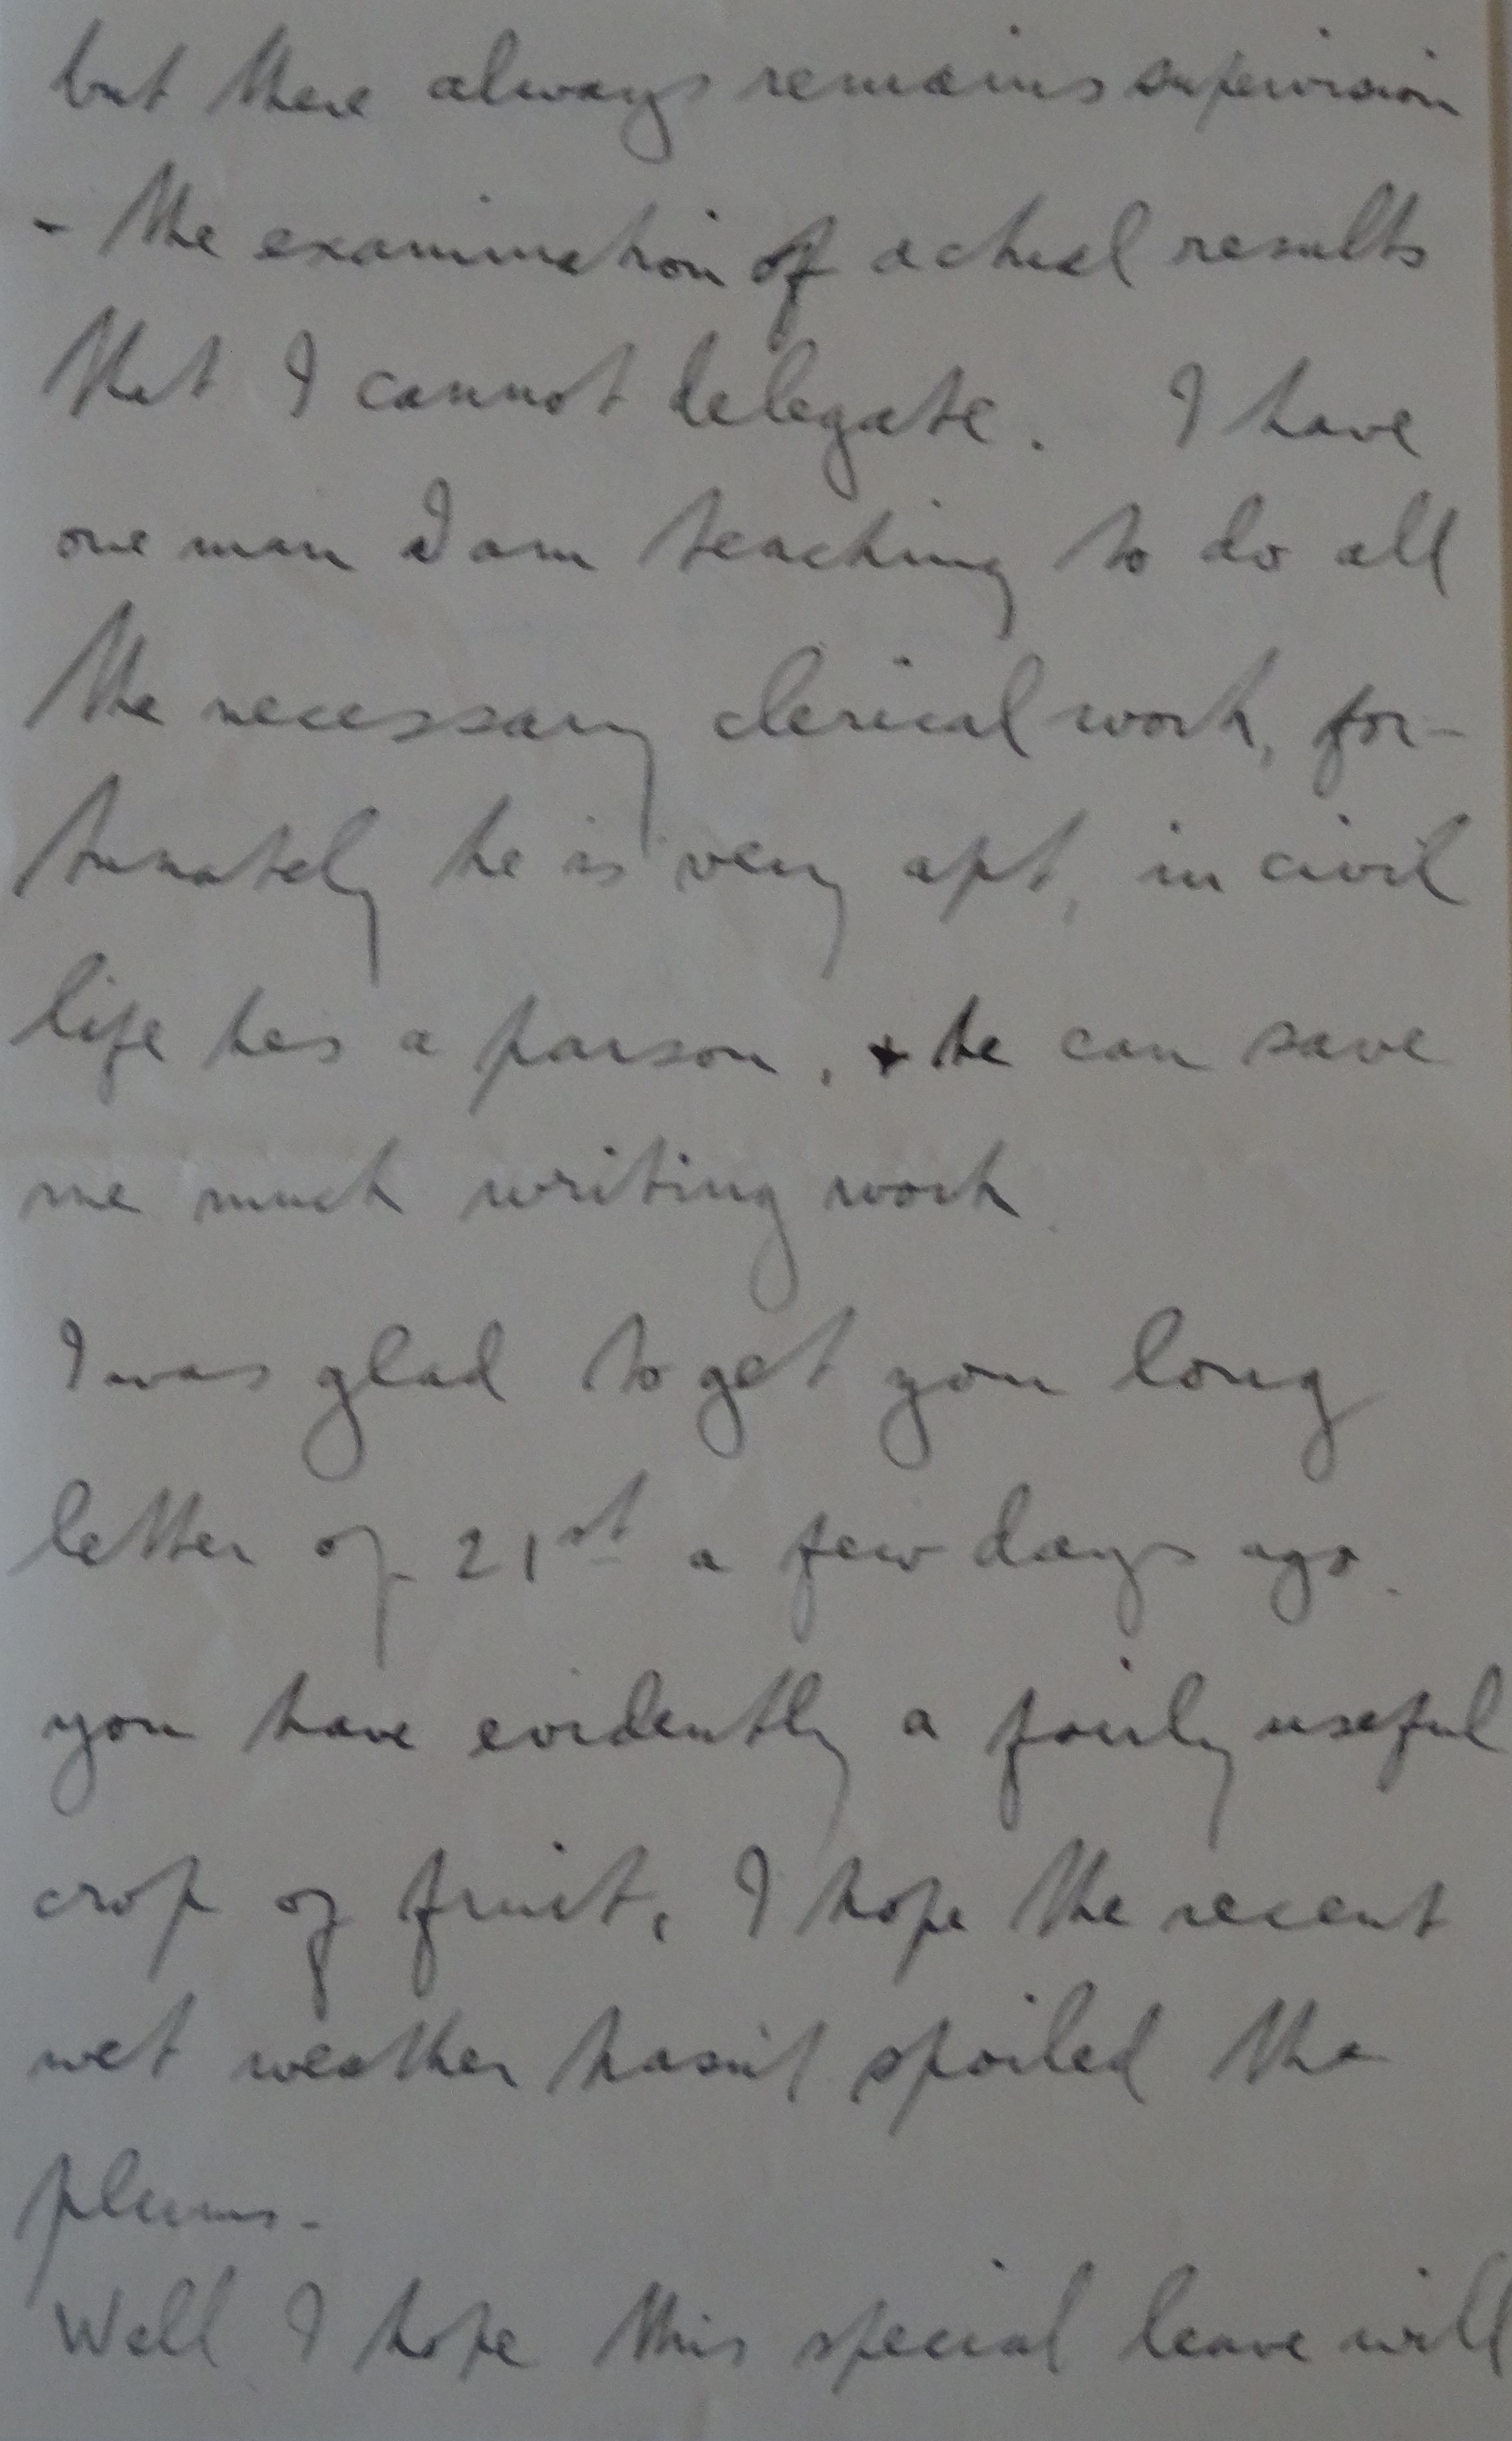 but there always remains supervision
- the examination of actual results
that I cannot delegate. I have
one man I am teaching to do all
the necessary clerical work, for-
tunately he is very apt, in civil
life hes a parson, + he can save
me much writing work.
I was glad to get you long
letter of 21st a few days ago.
you have evidently a fairly useful
crop of fruit, I hope the recent
wet weather hasn't spoiled the
plums.
Well I hope this special leave will